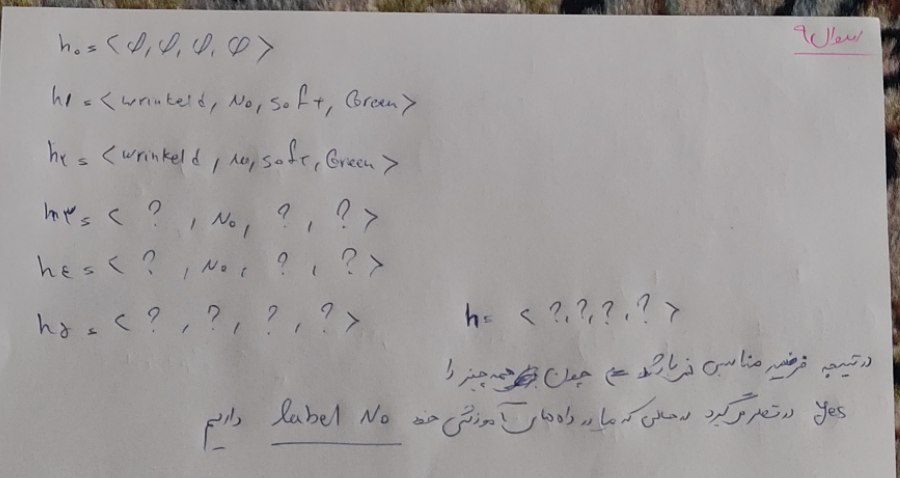 سوال ۹
h₀ = < φ, φ, φ, φ >
h۱ = < wrinkeld, No, soft, Green >
h۲ = < wrinkeld, No, soft, Green >
h۳ = < ?, No, ?, ? >
h٤ = < ?, No, ?, ? >
h۵ = < ?, ?, ?, ? >
h = < ?, ?, ?, ? >
در نتیجه فرضیه مناسبی نمی‌باشد چون همه چیز را
Yes در نظر می‌گیرد در حالی که ما در داده‌های آموزشی خود label No داریم